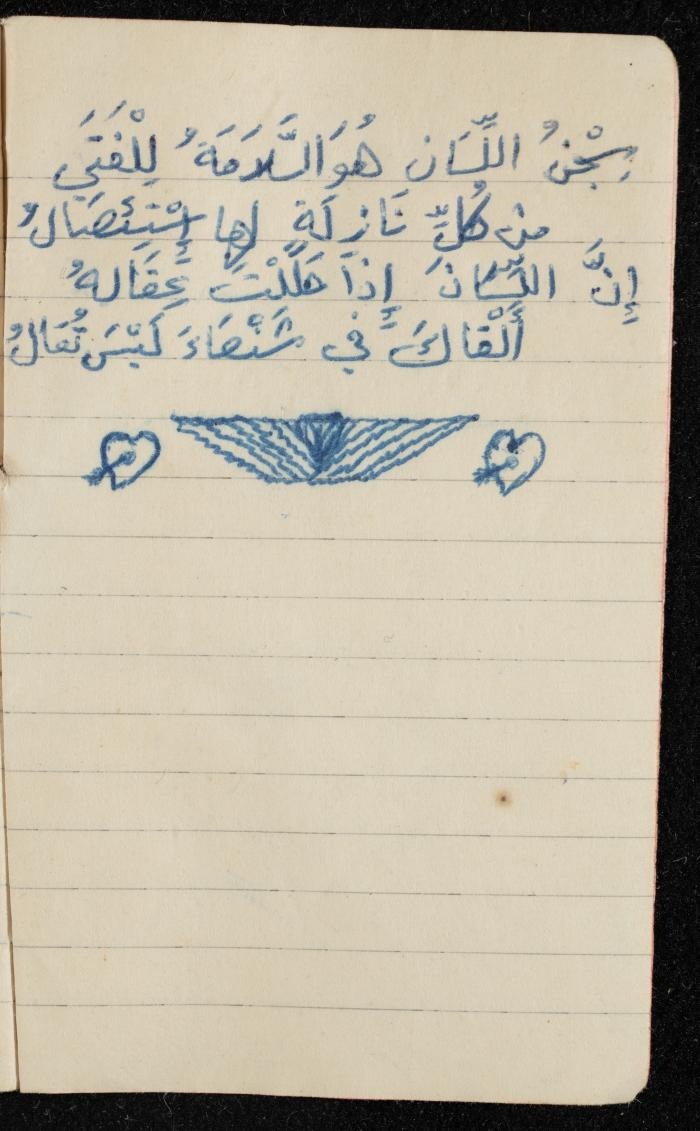 سِجْنُ اللِّسَانِ هُوَ السَّلَامَةُ لِلْفَتَى
مِن كُلِّ نَازِلَةٍ لها اسْتِئْصَالُ
إِنَّ اللِّسَانَ إِذَا حَلَلْتَ عِقَالهُ
أَلْقَاكَ في شَنْعَاءَ لَيْسَ تُقَالُ